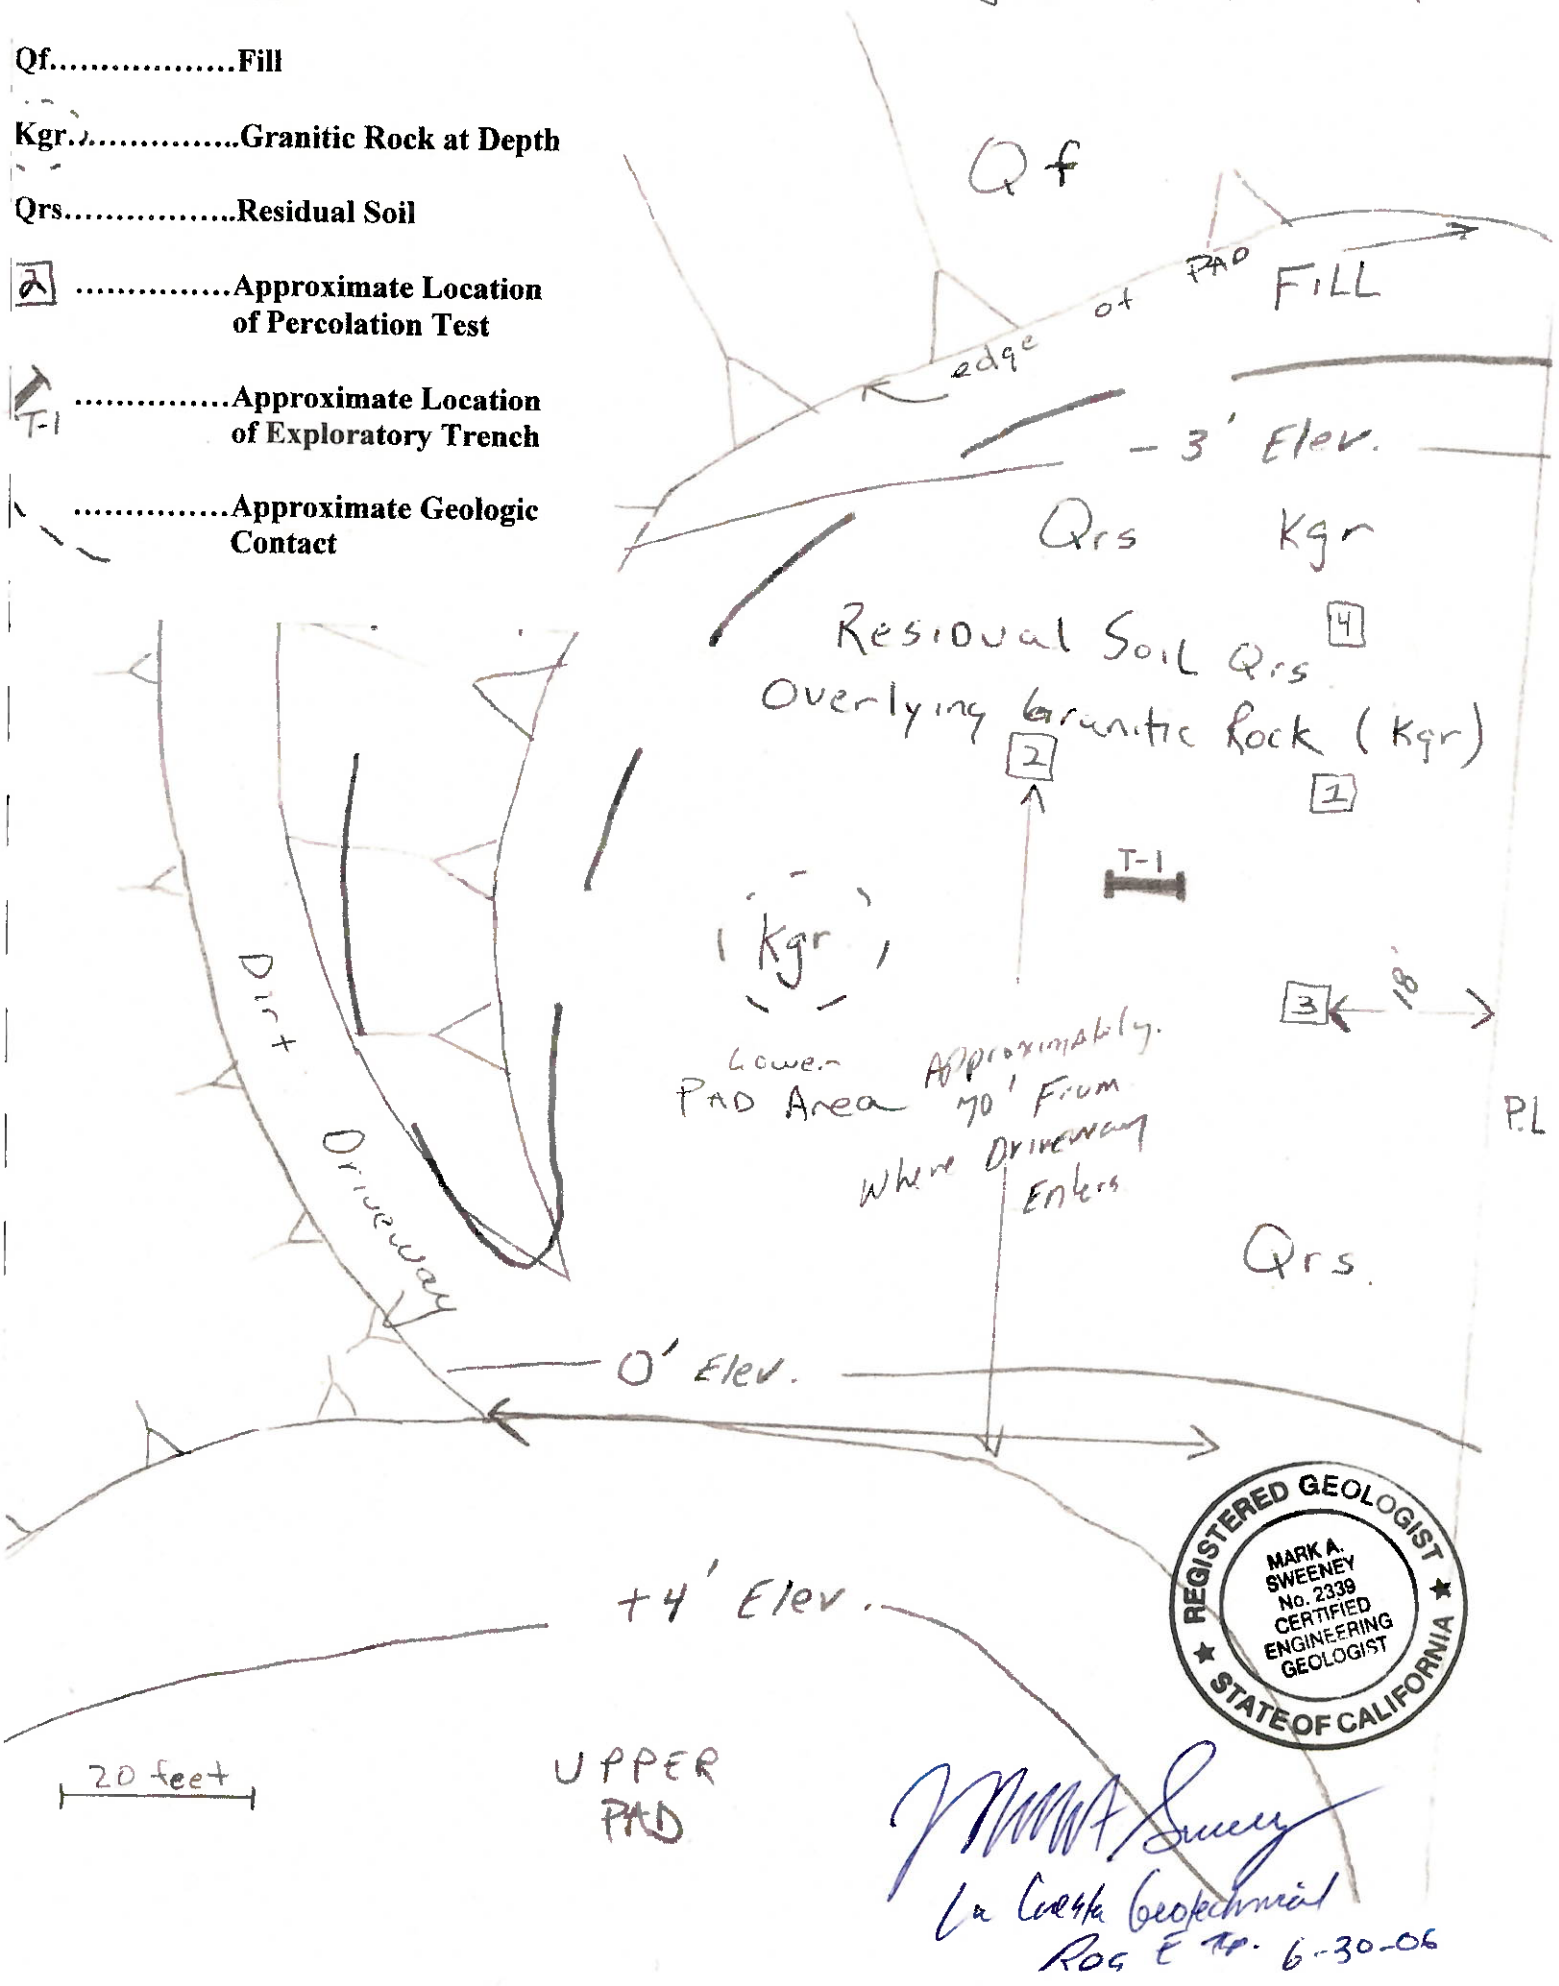 Qf..................Fill
Kgr.................Granitic Rock at Depth
Qrs.................Residual Soil
2 ...............Approximate Location
of Percolation Test
T-1 ...............Approximate Location
of Exploratory Trench
...............Approximate Geologic
Contact
Qf
edge of PAD
FILL
- 3' Elev.
Qrs Kgr
4
Residual Soil Qrs
Overlying Granitic Rock (Kgr)
2
1
T-1
Kgr
3
18'
Lower
PAD Area
Approximately
70' From
Where Driveway
Enters
P.L
Dirt Driveway
Qrs.
0' Elev.
+4' Elev.
REGISTERED GEOLOGIST
MARK A.
SWEENEY
No. 2339
CERTIFIED
ENGINEERING
GEOLOGIST
STATE OF CALIFORNIA
20 feet
UPPER
PAD
La Cuesta Geotechnical
6-30-06